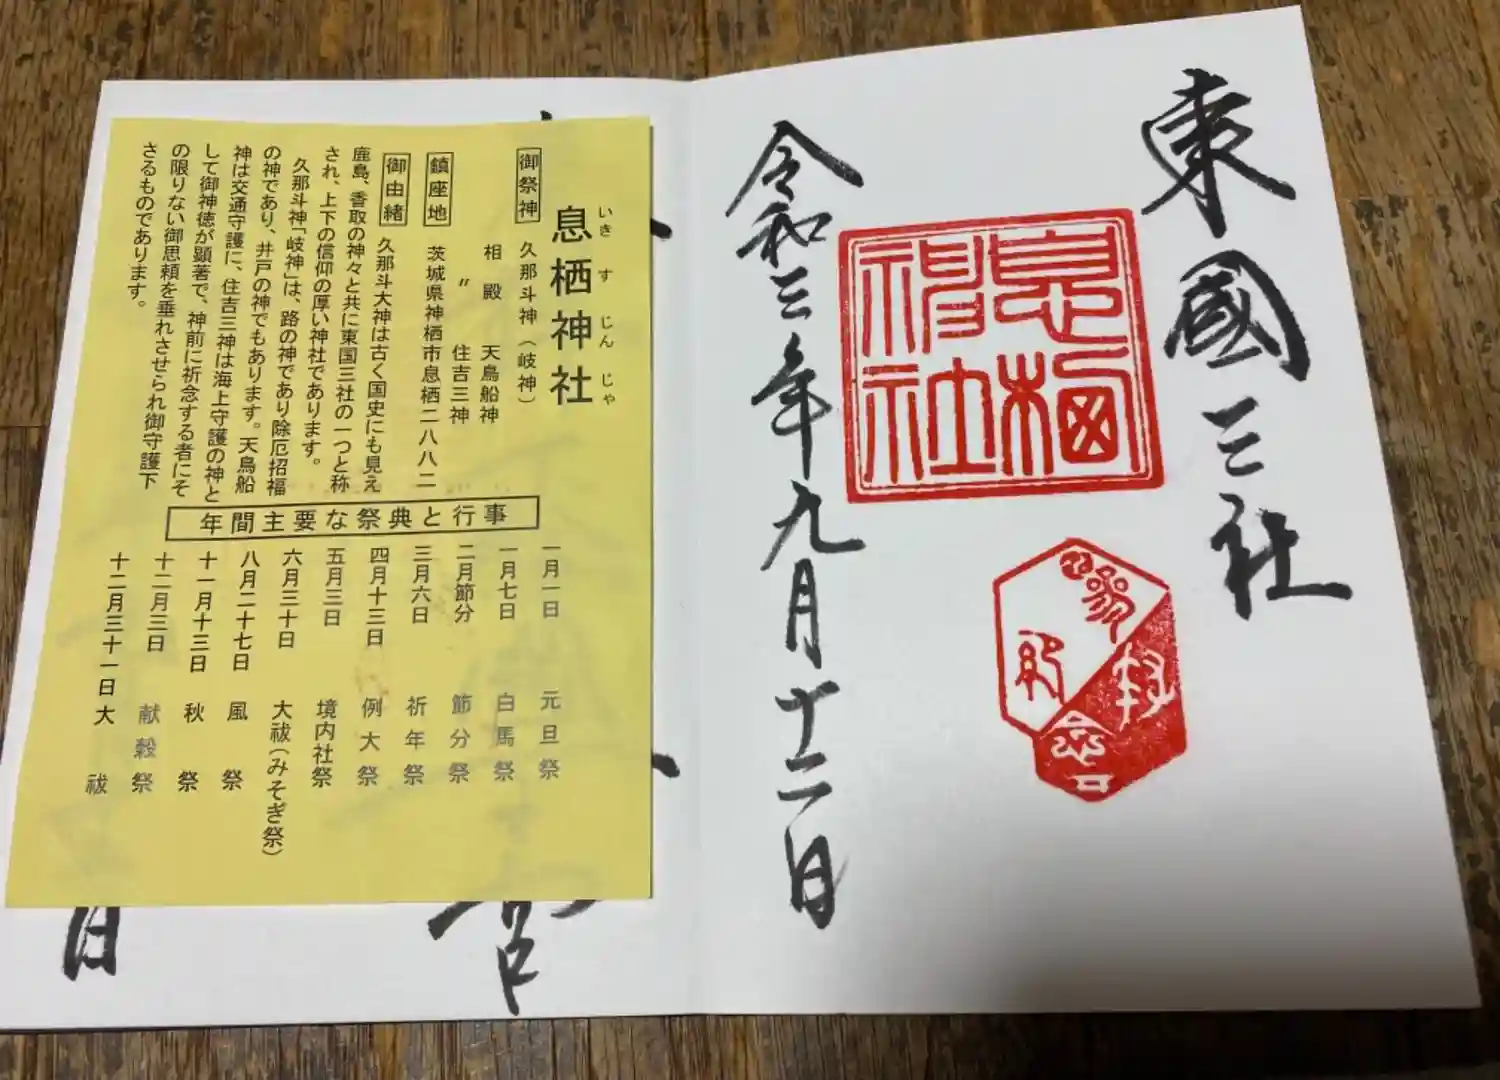 東國三社
息栖
神社
令和三年九月十二日
息栖神社
いきすじんじゃ
御祭神
久那斗神(岐神)
相殿 天鳥船神
〃 住吉三神
鎮座地
茨城県神栖市息栖二八八二
御由緒
久那斗大神は古く国史にも見え
鹿島、香取の神々と共に東国三社の一つと称
され、上下の信仰の厚い神社であります。
久那斗神「岐神」は、路の神であり除厄招福
の神であり、井戸の神でもあります。天鳥船
神は交通守護に、住吉三神は海上守護の神と
して御神徳が顕著で、神前に祈念する者にそ
の限りない御思頼を垂れさせられ御守護下
さるものであります。
年間主要な祭典と行事
一月一日 元旦祭
一月七日 白馬祭
二月節分 節分祭
三月六日 祈年祭
四月十三日 例大祭
五月三日 境内社祭
六月三十日 大祓(みそぎ祭)
八月二十七日 風祭
十一月十三日 秋祭
十二月三日 献穀祭
十二月三十一日 大祓
日
宮